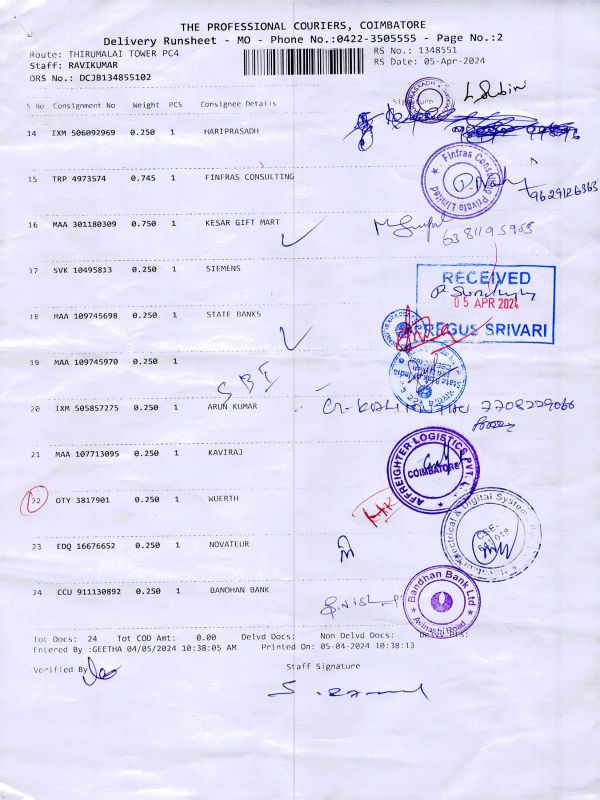 THE PROFESSIONAL COURIERS, COIMBATORE
Delivery Runsheet - MO - Phone No.:0422-3505555 - Page No.:2
Route: THIRUMALAI TOWER PC4 RS No.: 1348551
Staff: RAVIKUMAR RS Date: 05-Apr-2024
DRS No.: DCJB134855102
S No Consignment No Weight PCS Consignee Details Signature
14 IXM 506092969 0.250 1 HARIPRASADH
15 TRP 4973574 0.745 1 FINFRAS CONSULTING
Finfras Consulting Private Limited
9629126363
16 MAA 301180309 0.750 1 KESAR GIFT MART
6381195955
17 SVK 10495813 0.250 1 SIEMENS
RECEIVED
05 APR 2024
REGUS SRIVARI
18 MAA 109745698 0.250 1 STATE BANKS
19 MAA 109745970 0.250 1
SBI
20 IXM 505857275 0.250 1 ARUN KUMAR
7708229066
21 MAA 107713095 0.250 1 KAVIRAJ
AFFREIGHTER LOGISTICS PVT.
COIMBATORE
22 OTY 3817901 0.250 1 WUERTH
Electrical & Digital System
23 EDQ 16676652 0.250 1 NOVATEUR
24 CCU 911130892 0.250 1 BANDHAN BANK
Bandhan Bank Ltd
Avinashi Road
Tot Docs: 24 Tot COD Amt: 0.00 Delvd Docs: Non Delvd Docs:
Entered By :GEETHA 04/05/2024 10:38:05 AM Printed On: 05-04-2024 10:38:13
Verified By Staff Signature